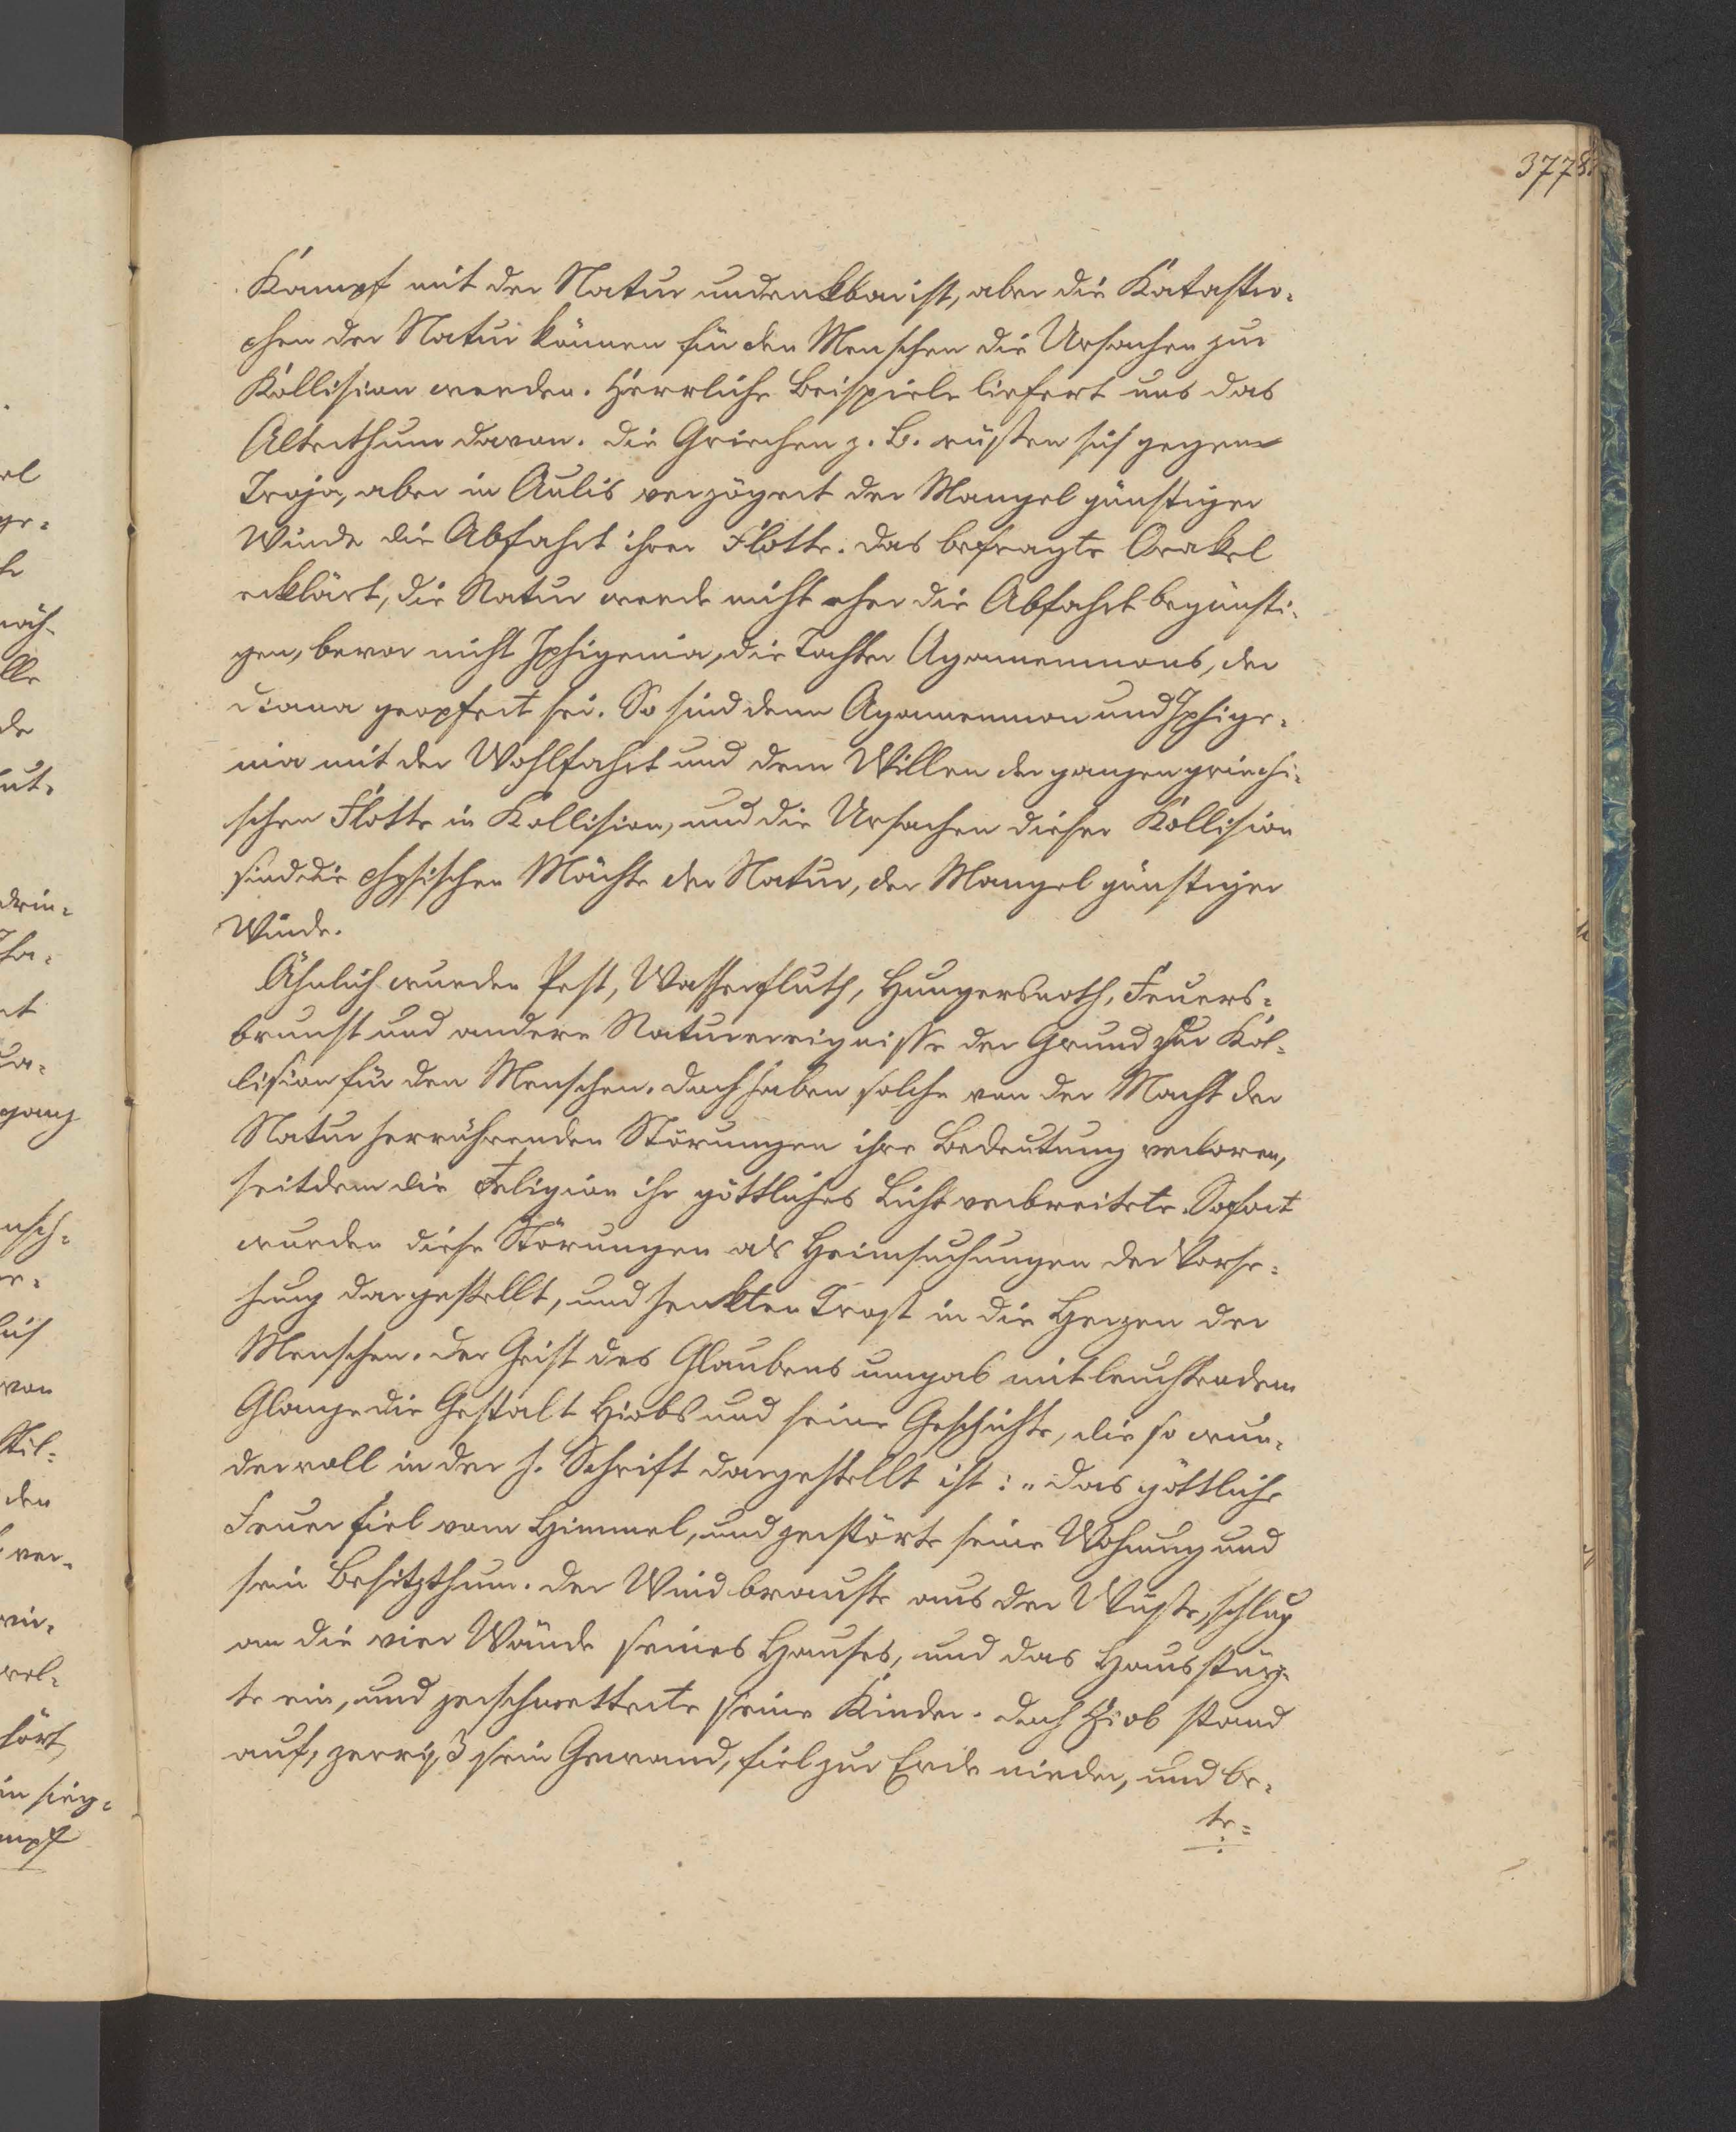 3778.
Kampf mit der Natur undenkbar ist, aber die Katastro-
phen der Natur können für den Menschen die Ursachen zur
Kollision werden. Herrliche Beispiele liefert uns das
Alterthum davon. Die Griechen z. B. rüsten sich gegen
Troja, aber in Aulis verzögert der Mangel günstiger
Winde die Abfahrt ihrer Flotte. Das befragte Orakel
erklärt, die Natur werde nicht eher die Abfahrt begünsti-
gen, bevor nicht Iphigenia, die Tochter Agamemnons, der
Diana geopfert sei. So sind denn Agamemnon und Iphige-
nia mit der Wohlfahrt und dem Willen der ganzen griechi-
schen Flotte in Kollision, und die Ursachen dieser Kollision
sind die physischen Mächte der Natur, der Mangel günstiger
Winde.
Ähnlich wurden Pest, Wasserfluth, Hungersnoth, Feuers-
brunst und andere Naturereignisse der Grund zur Kol-
lision für den Menschen. Doch haben solche von der Macht der
Natur herrührenden Störungen ihre Bedeutung verloren,
seitdem die Religion ihr göttliches Licht verbreitete. Sofort
wurden diese Störungen als Heimsuchungen der Vorse-
hung dargestellt, und senkten Trost in die Herzen der
Menschen. Der Geist des Glaubens umgab mit leuchtendem
Glanze die Gestalt Hiobs und seine Geschichte, die so wun-
dervoll in der h. Schrift dargestellt ist: „Das göttliche
Feuer fiel vom Himmel, und zerstörte seine Wohnung und
sein Besitzthum. Der Wind brauste aus der Wüste, schlug
an die vier Wände seines Hauses, und das Haus stürz-
te ein, und zerschmetterte seine Kinder. Doch Hiob stand
auf, zerriß sein Gewand, fiel zur Erde nieder, und be-
te-